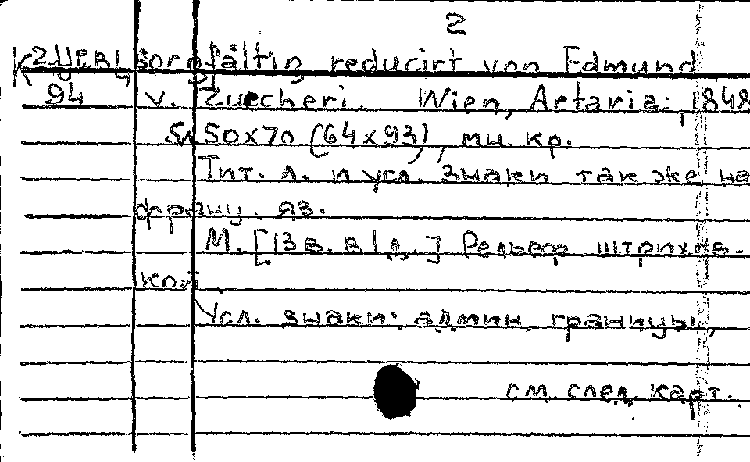 2
sorgfältig reducirt von Edmund
94 v. Zuccheri. Wien, Artaria, 1848
50x70 (64x93), мн. кр.
Тит. л. и усл. знаки так же на
франц. яз.
М. [13 в. в 1 д.] Рельеф штрихов-
кой.
Усл. знаки: админ границы,
см. след. карт.